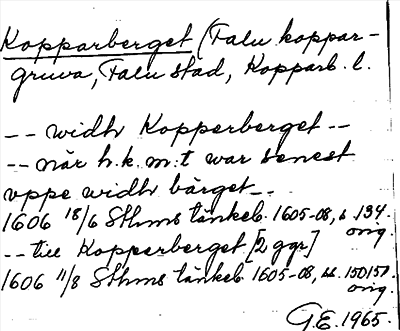 Kopparberget (Falu koppar-
gruva, Falu stad, Kopparb. l.
-- widh Kopperberget --
-- när h. k. m:t war senest
vppe widh bärget --
1606 18/6 Sthms tänkeb. 1605-08, s. 134.
orig.
-- till Kopperberget [2 ggr]
1606 11/8 Sthms tänkeb. 1605-08, ss. 150 151.
orig.
G.E. 1965.